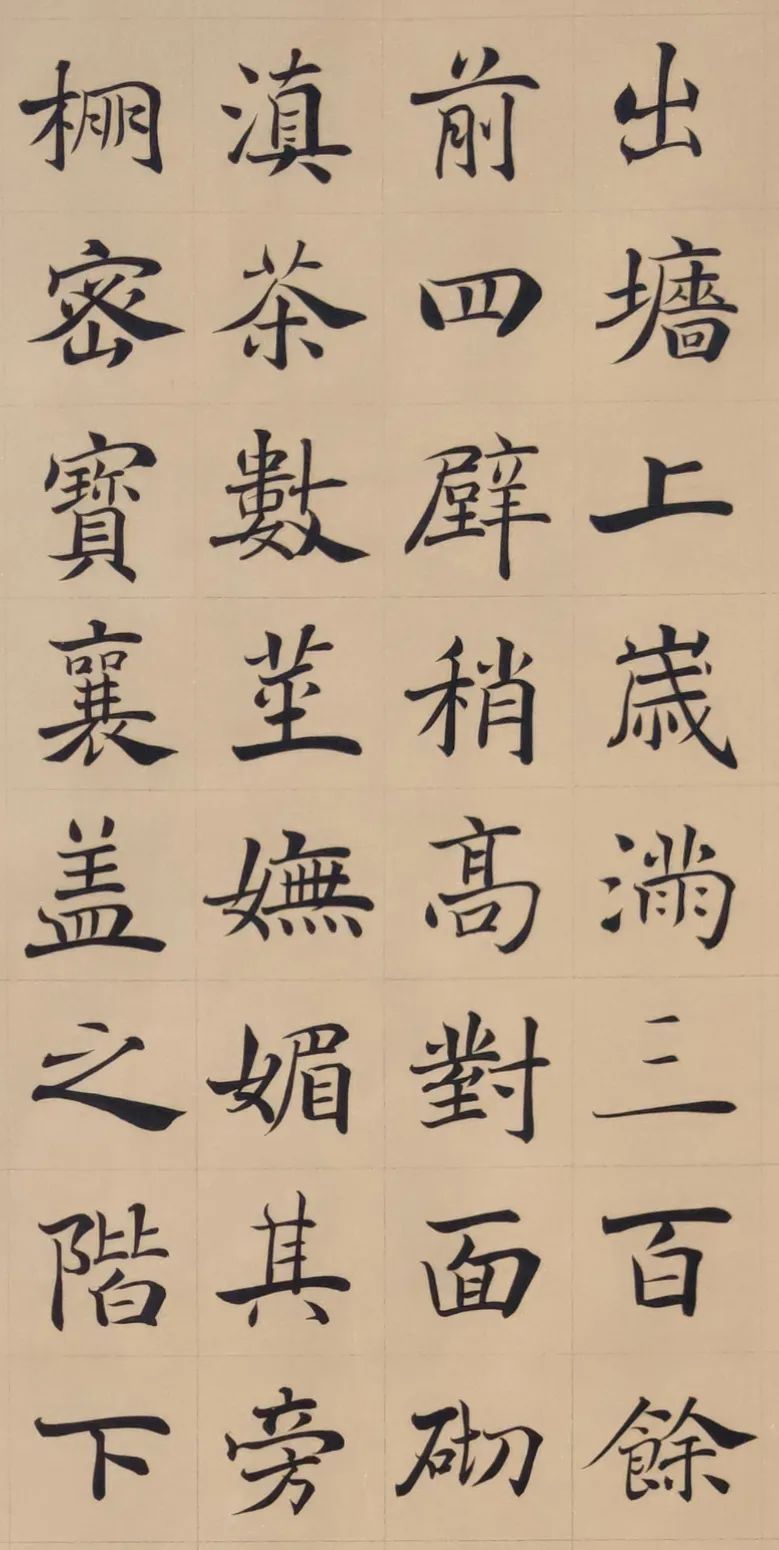 出墻上歲滿三百餘
前四壁稍高對面砌
滇茶數莖嫵媚其旁
棚密寶襄蓋之階下